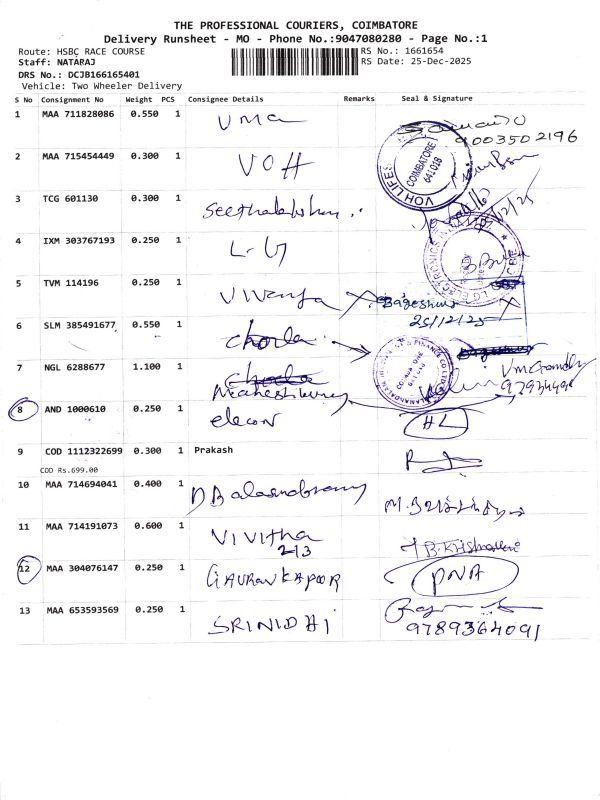 THE PROFESSIONAL COURIERS, COIMBATORE
Delivery Runsheet - MO - Phone No.:9047080280 - Page No.:1
Route: HSBC RACE COURSE RS No.: 1661654
Staff: NATARAJ RS Date: 25-Dec-2025
DRS No.: DCJB166165401
Vehicle: Two Wheeler Delivery
S No Consignment No Weight PCS Consignee Details Remarks Seal & Signature
1 MAA 711828086 0.550 1 UMA
9003502196
2 MAA 715454449 0.300 1 VOH COIMBATORE 641018 VOH LIFES
3 TCG 601130 0.300 1
4 IXM 303767193 0.250 1 L-G LG ELECTRONICS
5 TVM 114196 0.250 1 Bageshwar
25/12/25
6 SLM 385491677 0.550 1 chola
7 NGL 6288677 1.100 1 Maheshwary
8 AND 1000610 0.250 1 elcon HL
9 COD 1112322699 0.300 1 Prakash
COD Rs.699.00
10 MAA 714694041 0.400 1
11 MAA 714191073 0.600 1 VIVITHA
213
12 MAA 304076147 0.250 1 GAURAV KAPOOR PNA
13 MAA 653593569 0.250 1 SRINIDHI
9789364091